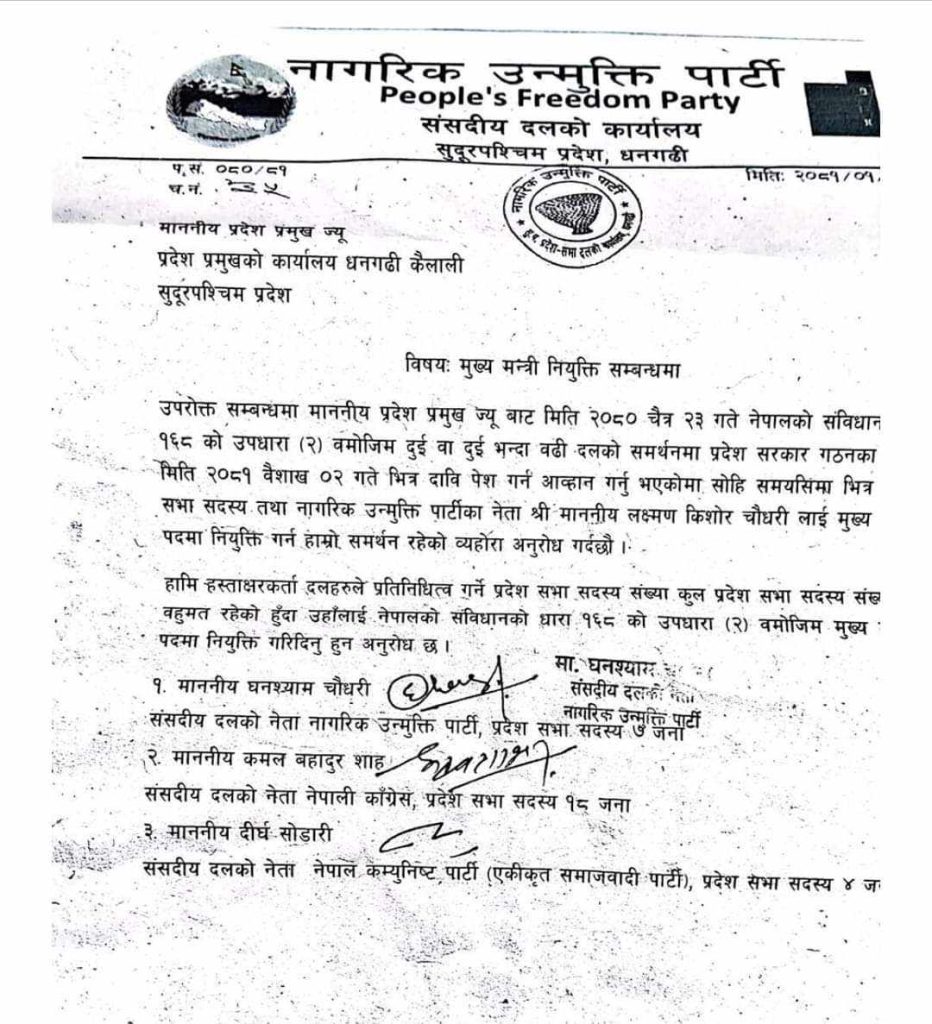 नागरिक उन्मुक्ति पार्टी
People's Freedom Party
संसदीय दलको कार्यालय
सुदूरपश्चिम प्रदेश, धनगढी
प.सं. ०८०/८१
मितिः २०८१/०१
च.नं.
नागरिक उन्मुक्ति पार्टी
माननीय प्रदेश प्रमुख ज्यू
प्रदेश प्रमुखको कार्यालय धनगढी कैलाली
सुदूरपश्चिम प्रदेश
विषयः मुख्य मन्त्री नियुक्ति सम्बन्धमा
उपरोक्त सम्बन्धमा माननीय प्रदेश प्रमुख ज्यू बाट मिति २०८० चैत्र २३ गते नेपालको संविधान
१६८ को उपधारा (२) वमोजिम दुई वा दुई भन्दा वढी दलको समर्थनमा प्रदेश सरकार गठनका
मिति २०८१ वैशाख ०२ गते भित्र दावि पेश गर्न आव्हान गर्नु भएकोमा सोहि समयसिमा भित्र
सभा सदस्य तथा नागरिक उन्मुक्ति पार्टीका नेता श्री माननीय लक्ष्मण किशोर चौधरी लाई मुख्य
पदमा नियुक्ति गर्न हाम्रो समर्थन रहेको व्यहोरा अनुरोध गर्दछौ ।
हामि हस्ताक्षरकर्ता दलहरुले प्रतिनिधित्व गर्ने प्रदेश सभा सदस्य संख्या कुल प्रदेश सभा सदस्य
वहुमत रहेको हुँदा उहाँलाई नेपालको संविधानको धारा १६८ को उपधारा (२) वमोजिम मुख्य
पदमा नियुक्ति गरिदिनु हुन अनुरोध छ ।
मा. घनश्याम
संसदीय दलको नेता
नागरिक उन्मुक्ति पार्टी
१. माननीय घनश्याम चौधरी
संसदीय दलको नेता नागरिक उन्मुक्ति पार्टी, प्रदेश सभा सदस्य ७ जना
२. माननीय कमल बहादुर शाह
संसदीय दलको नेता नेपाली काँग्रेस, प्रदेश सभा सदस्य १८ जना
३. माननीय दीर्घ सोडारी
संसदीय दलको नेता नेपाल कम्युनिष्ट पार्टी (एकीकृत समाजवादी पार्टी), प्रदेश सभा सदस्य ४